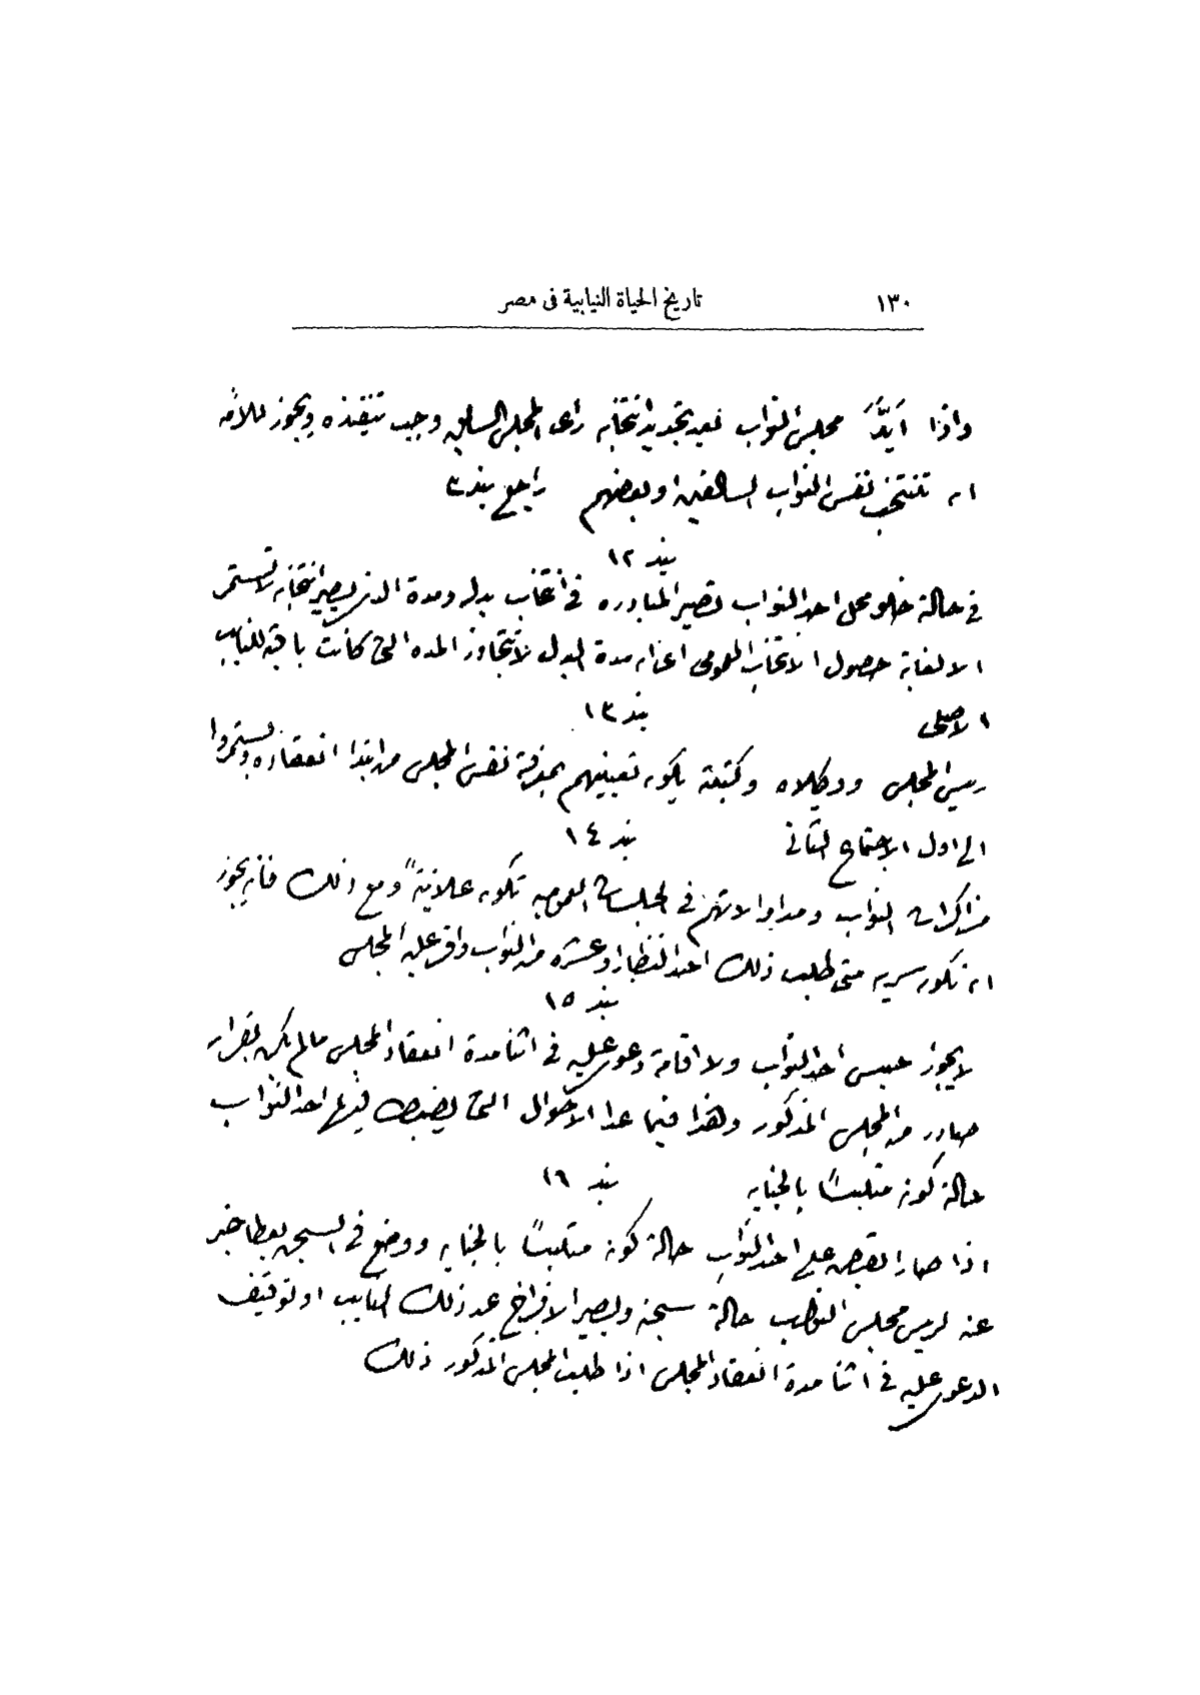 ١٣٠ تاريخ الحياة النيابية فى مصر
واذا أيَّدَ مجلس النواب بعد تجديد انتخابه رأى المجلس السابق وجب تنفيذه ويجوز للأمه
ان تنتخب نفس النواب السالفين او بعضهم راجع بند ٣
بند ١٢
فى حالة خلو محل احد النواب تصير المبادره فى انتخاب بدله ومدة الذى يصير انتخابه لا تستمر
الا لغاية حصول الانتخاب العمومى اعنى ان مدة البدل لا تتجاوز المده التى كانت باقية للنايب
الاصلى
بند ١٣
رييس المجلس ووكيلاه وكتبته يكون تعيينهم بمعرفة نفس المجلس من ابتدا انعقاده ويستمروا
الى اول الاجتماع الثانى
بند ١٤
مذاكرات النواب ومداولاتهم فى الجلسات العموميه تكون علانيةً ومع ذلك فانه يجوز
ان تكون سريه متى طلب ذلك احد النظار او عشره من النواب واقر عليه المجلس
بند ١٥
لا يجوز حبس احد النواب ولا اقامة دعوى عليه فى اثنا مدة انعقاد المجلس ما لم يكن بقرار
صادر من المجلس المذكور وهذا فيما عدا الاحوال التى يضبط فيها احد النواب
حالة كونه متلبسًا بالجنايه
بند ١٦
اذا صار القبض على احد النواب حالة كونه متلبسًا بالجنايه ووضع فى السجن يعطا خبر
عنه لرييس مجلس النواب حالة سجنه ويصير الافراج عن ذلك النايب او توقيف
الدعوى عليه فى اثنا مدة انعقاد المجلس اذا طلب المجلس المذكور ذلك